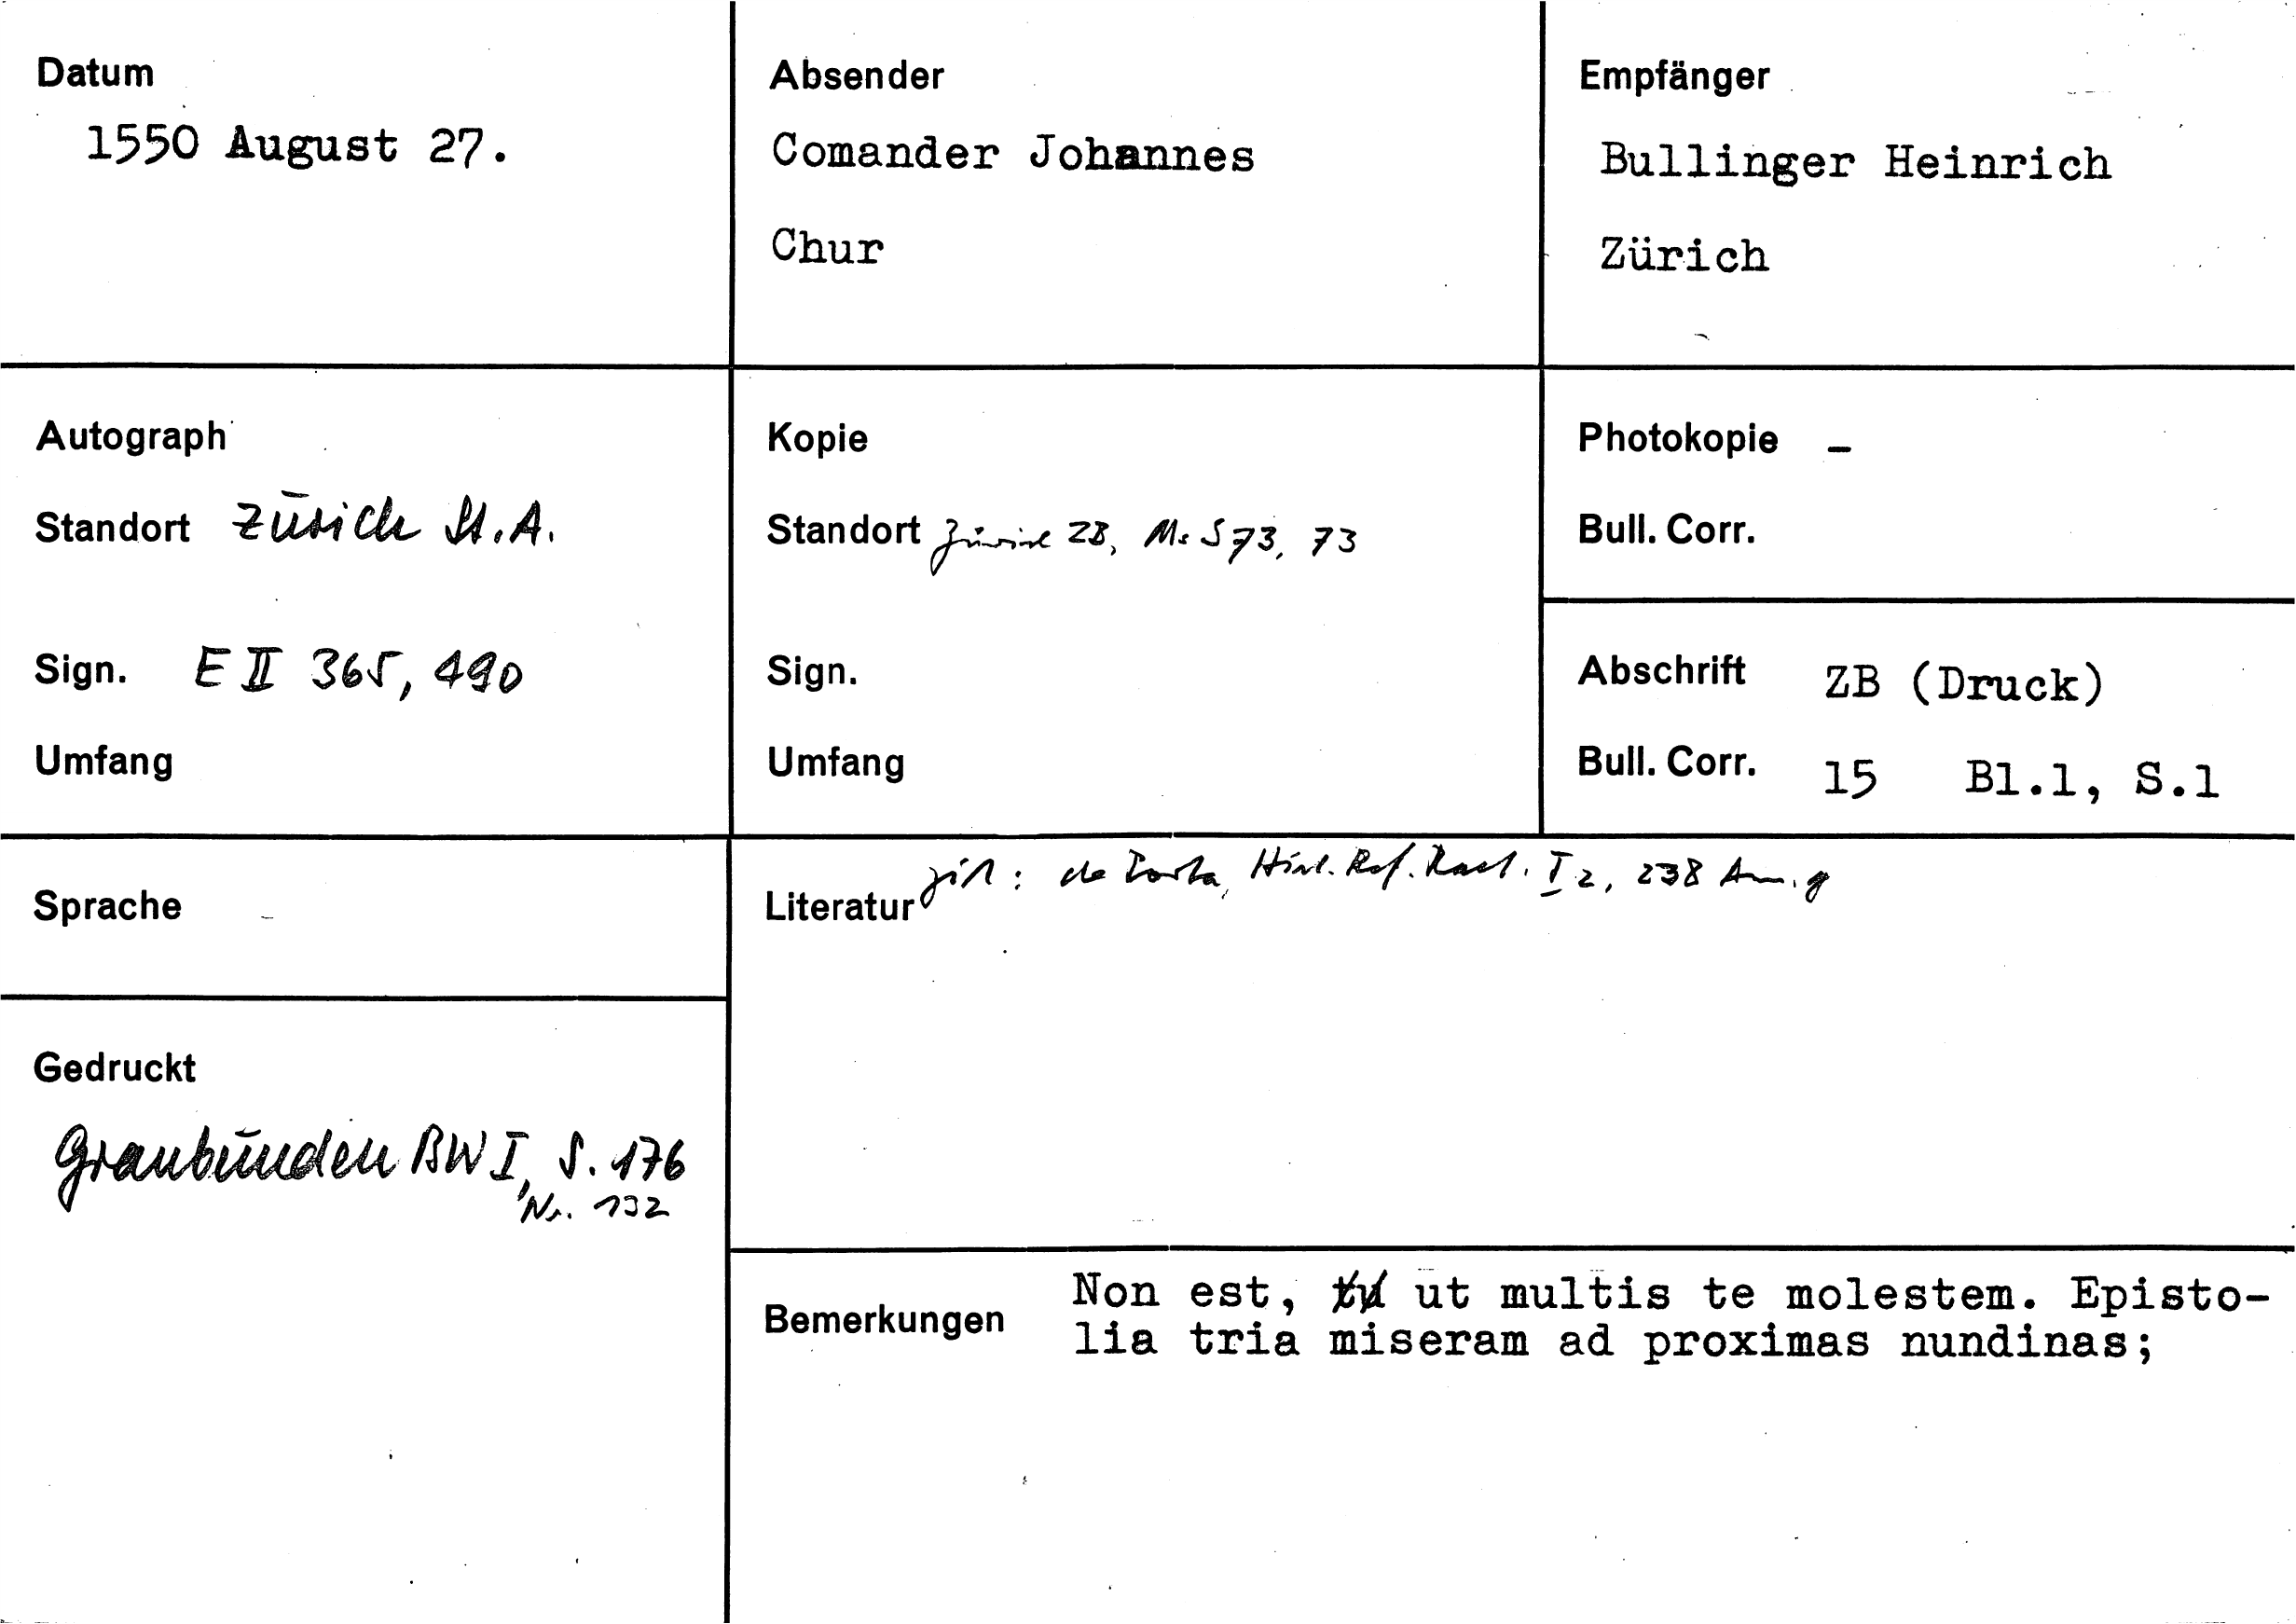 Datum
1550 August 27.
Absender
Comander Johannes
Chur
Empfänger
Bullinger Heinrich
Zürich
Autograph
Standort Zürich St.A.
Sign. E II 365, 490
Umfang
Kopie
Standort Zürich ZB, Ms S 73, 73
Sign.
Umfang
Photokopie –
Bull. Corr.
Abschrift ZB (Druck)
Bull. Corr. 15 Bl.1, S.1
Sprache
Gedruckt
Graubünden BW I, S. 176
Nr. 132
Literatur zit: de Porta, Hist. Ref. Raet. I 2, 238 Anm. g
Bemerkungen
Non est, ut multis te molestem. Episto-
lia tria miseram ad proximas nundinas;